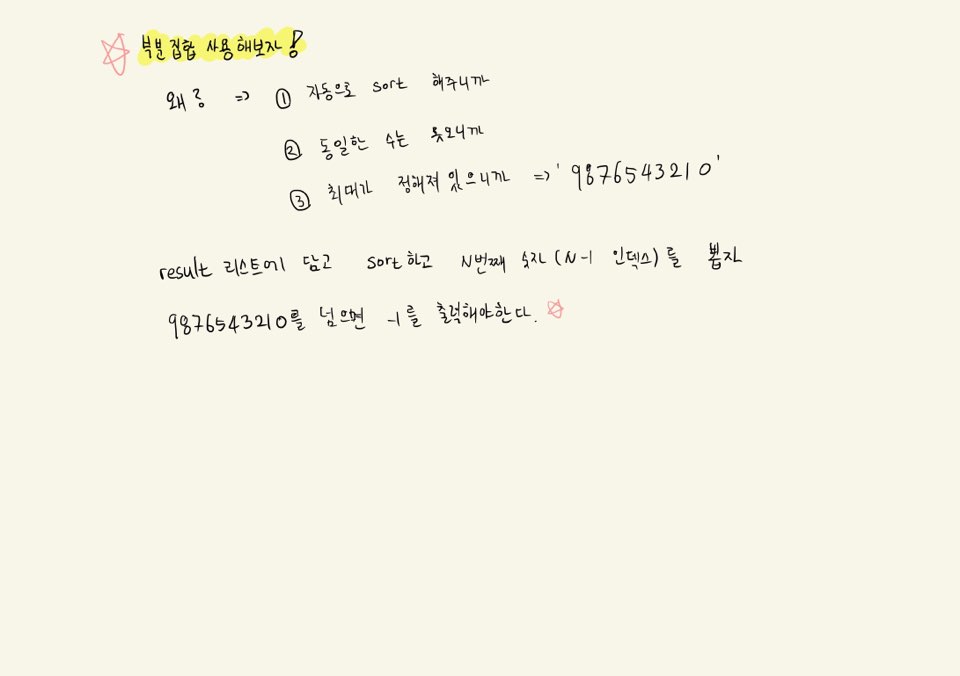 부분집합 사용해보자!
왜? => ① 자동으로 sort 해주니까
② 동일한 수는 못오니까
③ 최대가 정해져있으니까 => '9876543210'
result 리스트에 담고 sort하고 N번째 숫자(N-1 인덱스)를 뽑자
9876543210를 넘으면 -1를 출력해야한다.